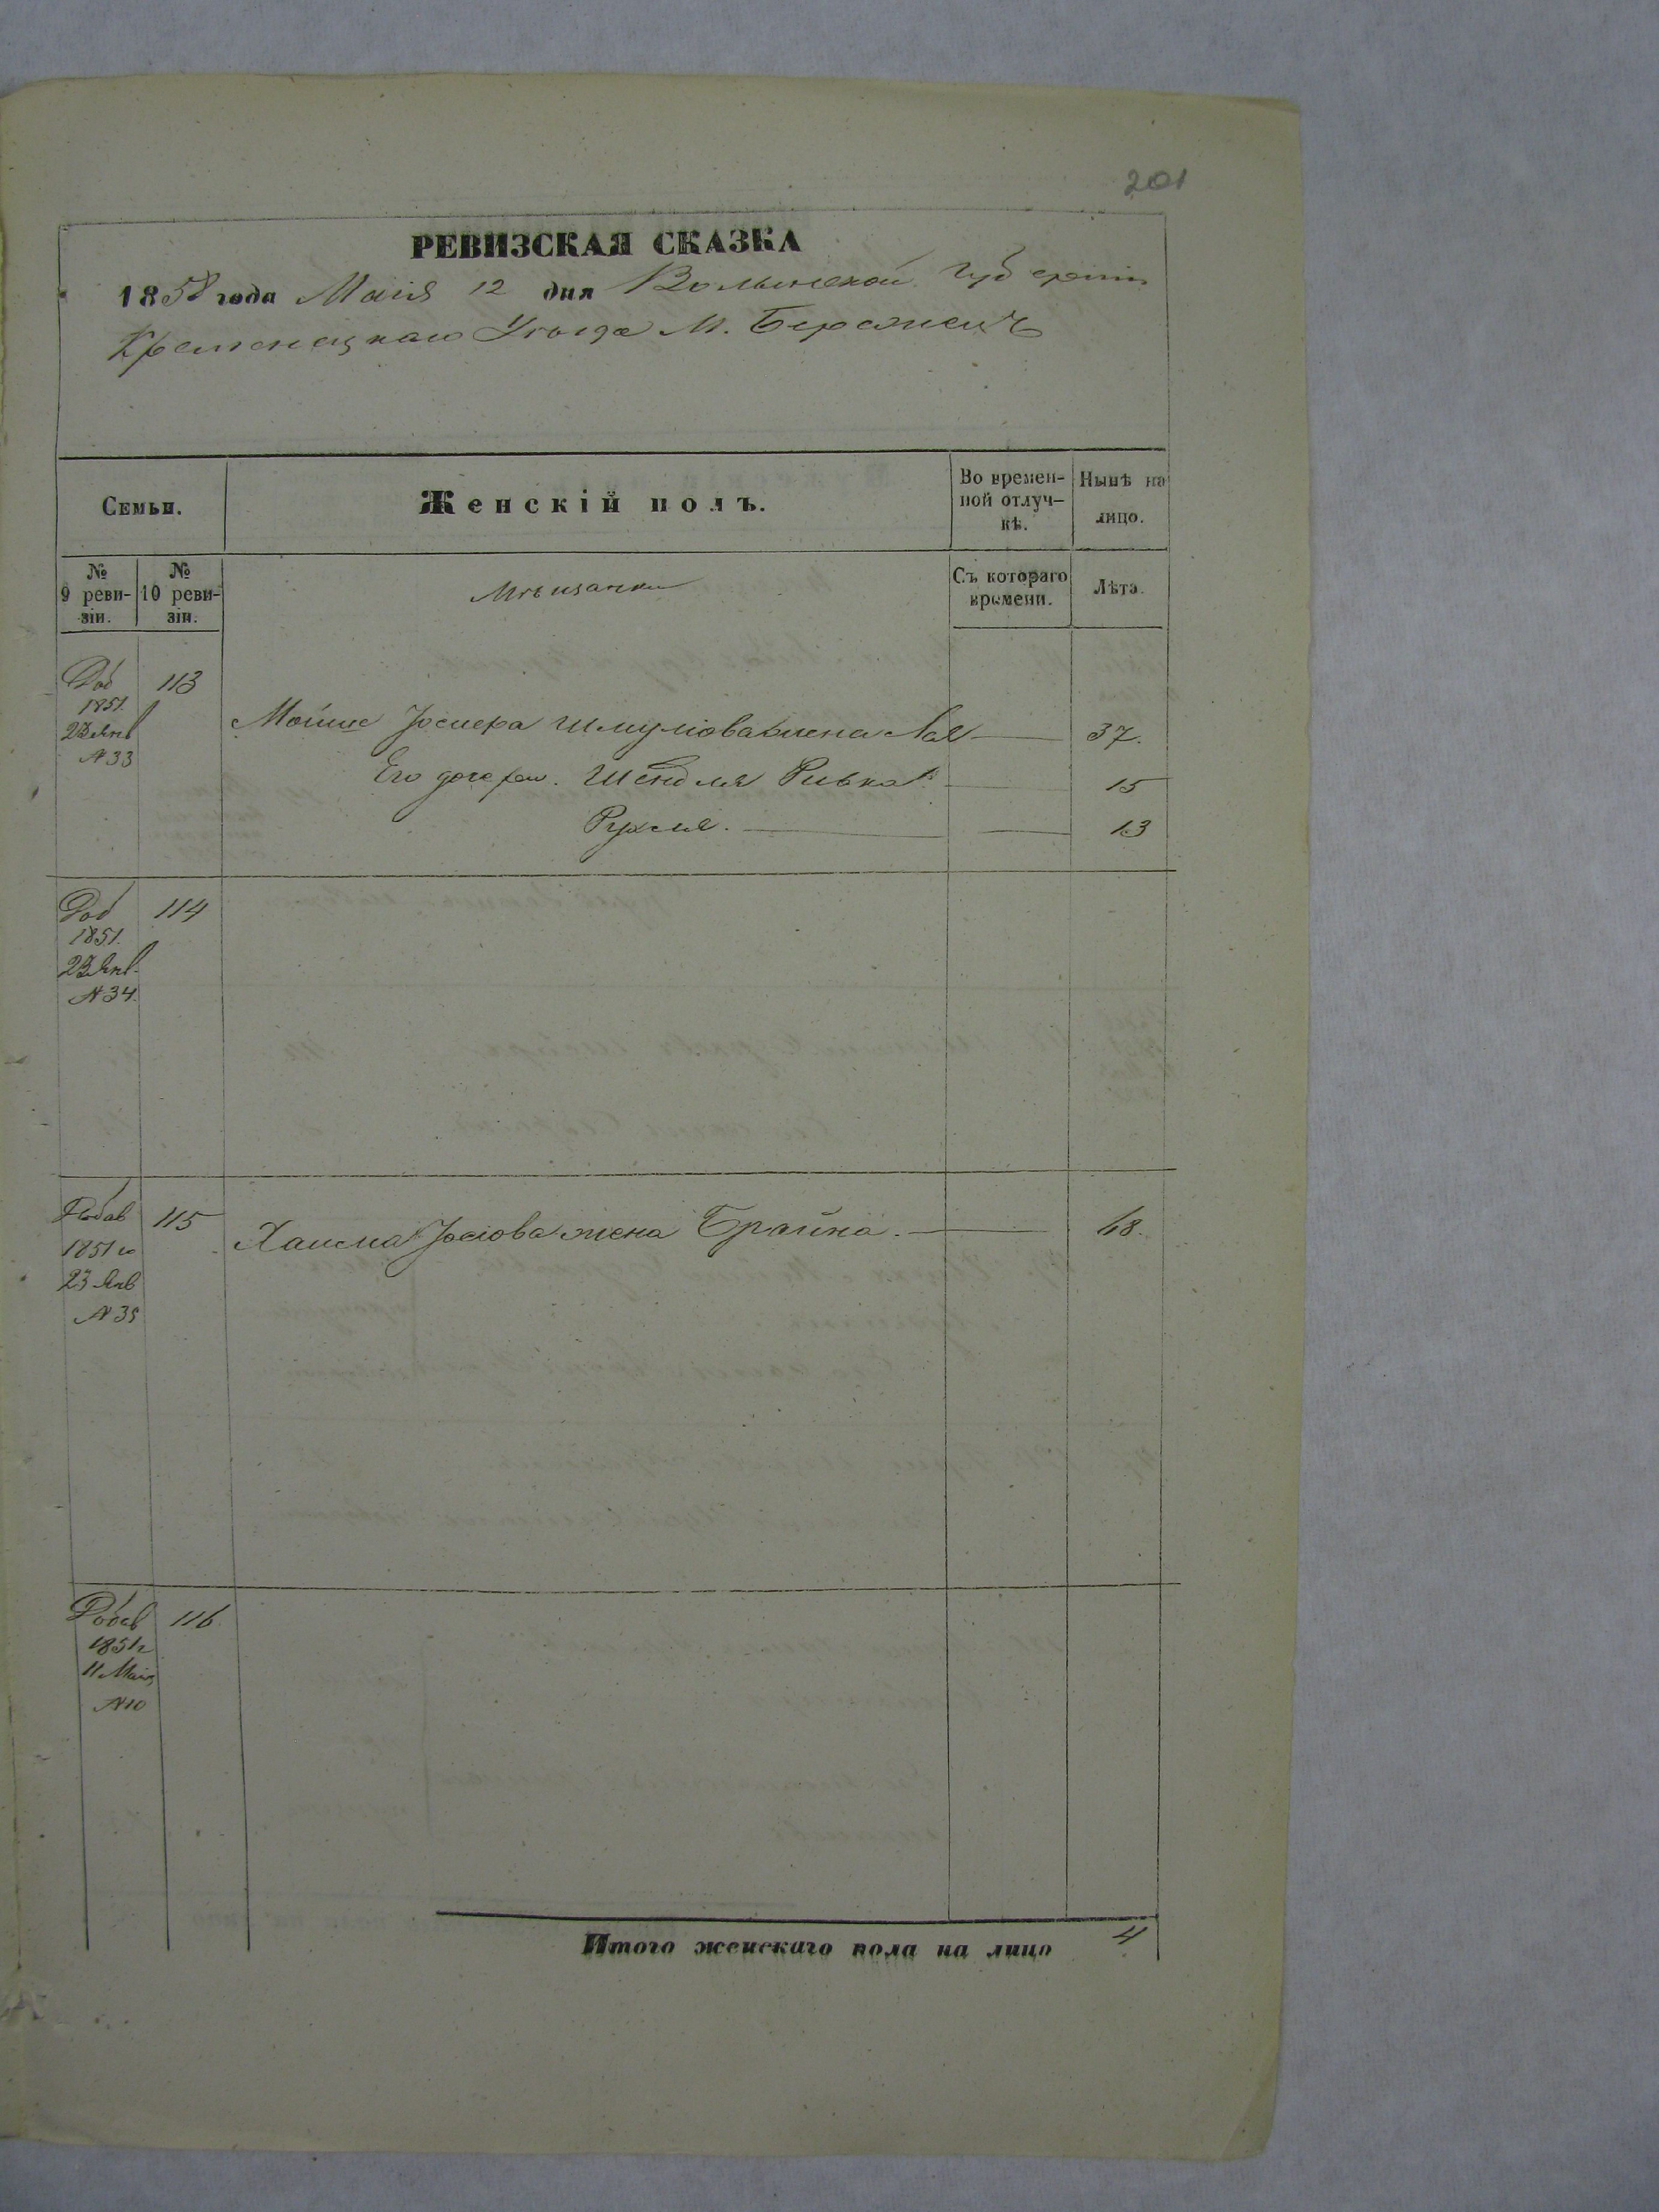 201
РЕВИЗСКАЯ СКАЗКА
1858 года Маія 12 дня Волынской Губерніи
Кременецкаго Уѣзда М. Бережецъ
Семьи.
Женскій полъ.
Во времен-
ной отлуч-
кѣ.
Нынѣ на
лицо.
№
9 реви-
зіи.
№
10 реви-
зіи.
Мѣщанки
Съ котораго
времени.
Лѣта.
Доб 113
1851.
23 Янв
N 33
Мойше Шмуліова жена Лая 37.
Его дочери. Шендля Ривка 15
Рухля. 13
Доб 114
1851.
23 Янв.
N 34.
Добав 115 Жена Брайна. 48.
1851 го
23 Янв
N 35
Добав 116
1851 г
11 Маія
N 10
Итого женскаго пола на лицо 4